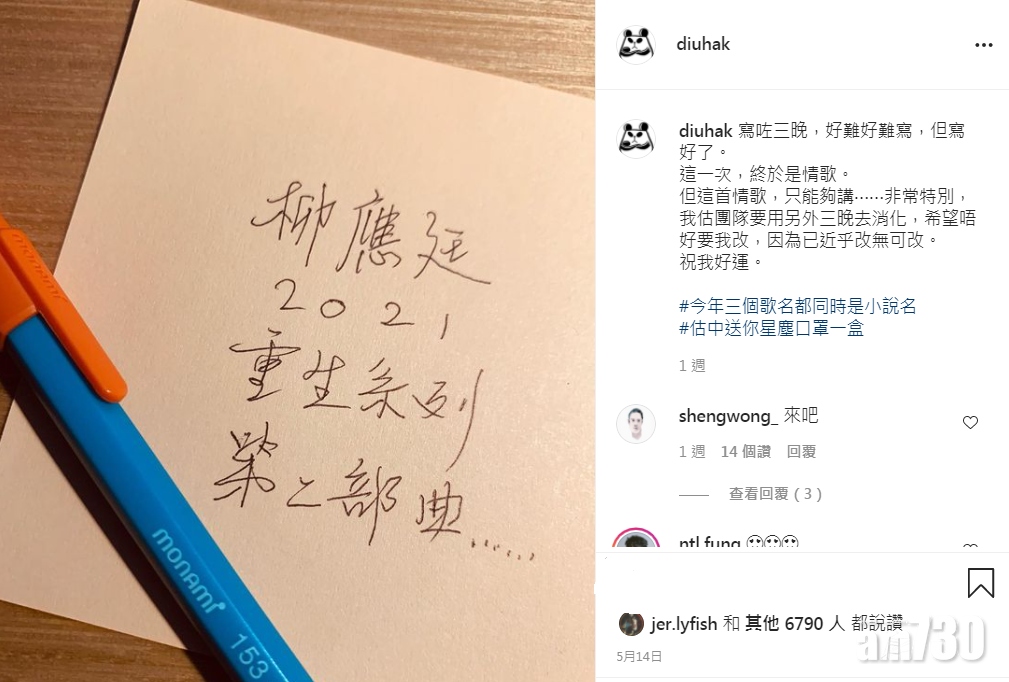 柳應廷
2021
重生系列
第二部曲......
monami
monami
153
diuhak
diuhak 寫咗三晚，好難好難寫，但寫
好了。
這一次，終於是情歌。
但這首情歌，只能夠講⋯⋯非常特別，
我估團隊要用另外三晚去消化，希望唔
好要我改，因為已近乎改無可改。
祝我好運。
#今年三個歌名都同時是小說名
#估中送你星塵口罩一盒
1 週
shengwong_ 來吧
1 週 14 個讚 回覆
查看回覆（3）
ntl.fung 😍😍😍
jer.lyfish 和 其他 6790 人 都說讚
5月14日
am730